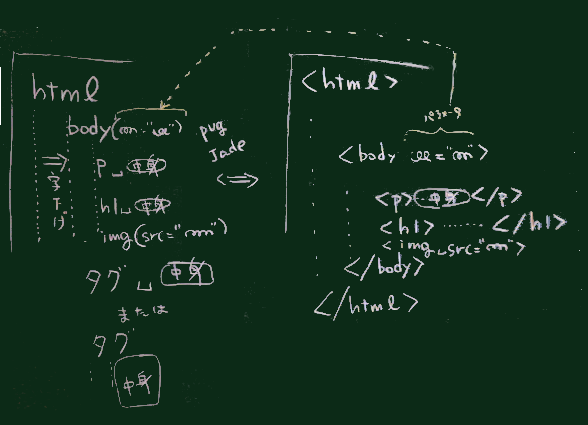 html
body(
p␣中身
h1␣中身
img(src="
字下げ
タグ␣中身
または
タグ
中身
pug
Jade
⇔
<html>
パラメータ
<body
<p>中身</p>
<h1>……</h1>
<img␣src="
</body>
</html>